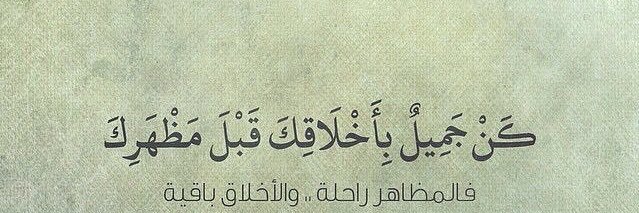 كَنْ جَمِيلٌ بِأَخْلَاقِكَ قَبْلَ مَظْهَرِكَ
فالمظاهر راحلة ،، والأخلاق باقية